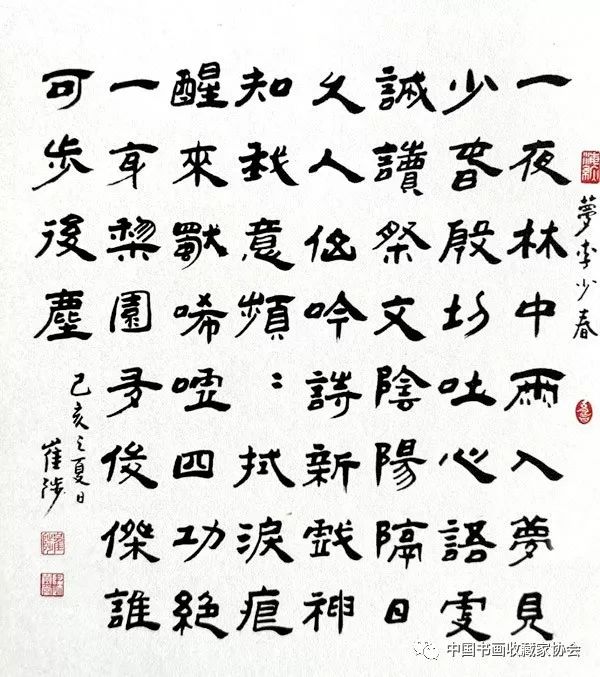 夢李少春
一夜林中雨入夢見
少春殷切吐心語虔
誠讀祭文陰陽隔日
久人低吟詩新戲神
知我意頻：拭淚痕
醒來猷唏噓四功絕
一身梨園多俊傑誰
可步後塵
己亥之夏日
崔陟
中国书画收藏家协会